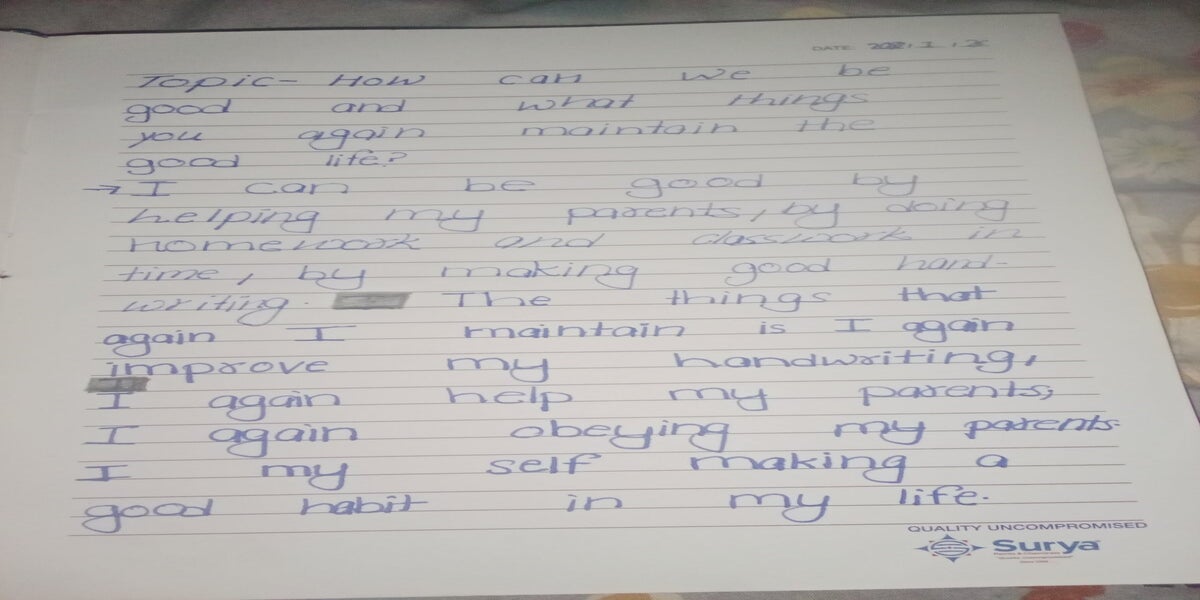 DATE
Topic- How can we be
good and what things
you again maintain the
good life?
→ I can be good by
helping my parents, by doing
homework and classwork in
time, by making good hand-
writing. The things that
again I maintain is I again
improve my handwriting,
I again help my parents,
I again obeying my parents.
I my self making a
good habit in my life.
QUALITY UNCOMPROMISED
Surya